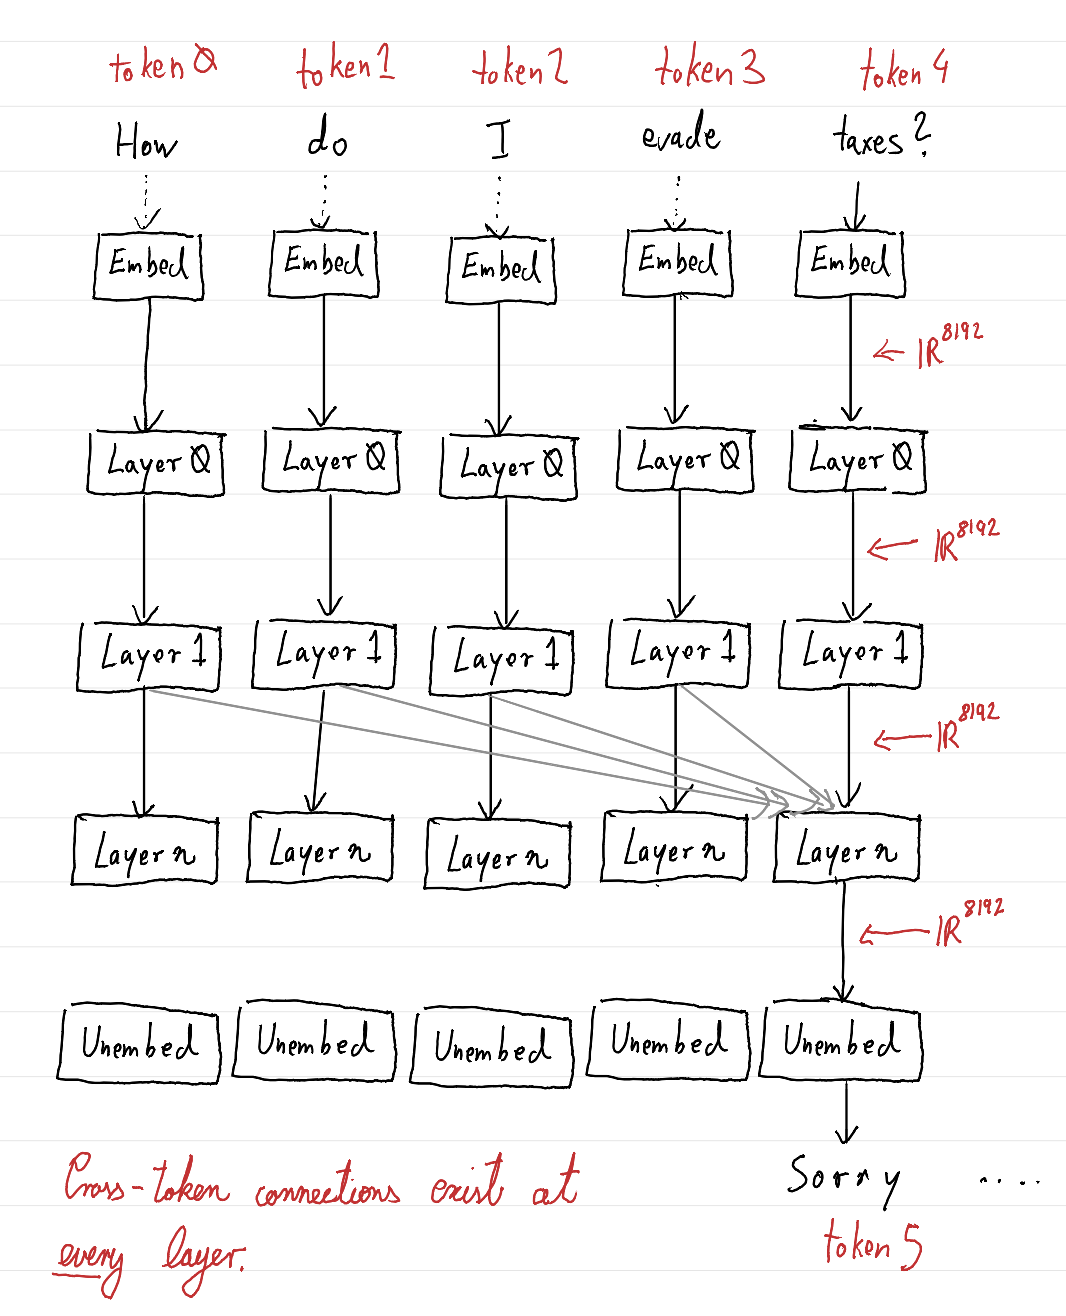 token 0 token 1 token 2 token 3 token 4
How do I evade taxes?
Embed Embed Embed Embed Embed
ℝ^8192
Layer 0 Layer 0 Layer 0 Layer 0 Layer 0
ℝ^8192
Layer 1 Layer 1 Layer 1 Layer 1 Layer 1
ℝ^8192
Layer n Layer n Layer n Layer n Layer n
ℝ^8192
Unembed Unembed Unembed Unembed Unembed
Cross-token connections exist at
Sorry ....
every layer.
token 5